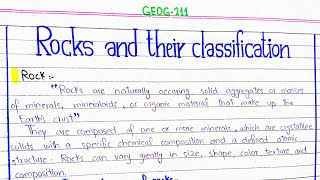 GEOG-211
Rocks and their classification
Rock :-
"Rocks are naturally occuring solid aggregates or masses
of minerals, mineraloids, or organic material that make up the
Earth's crust"
They are composed of one or more minerals, which are crystalline
solids with a specific chemical composition and a defined atomic
structure. Rocks can vary greatly in size, shape, color, texture and
composition.